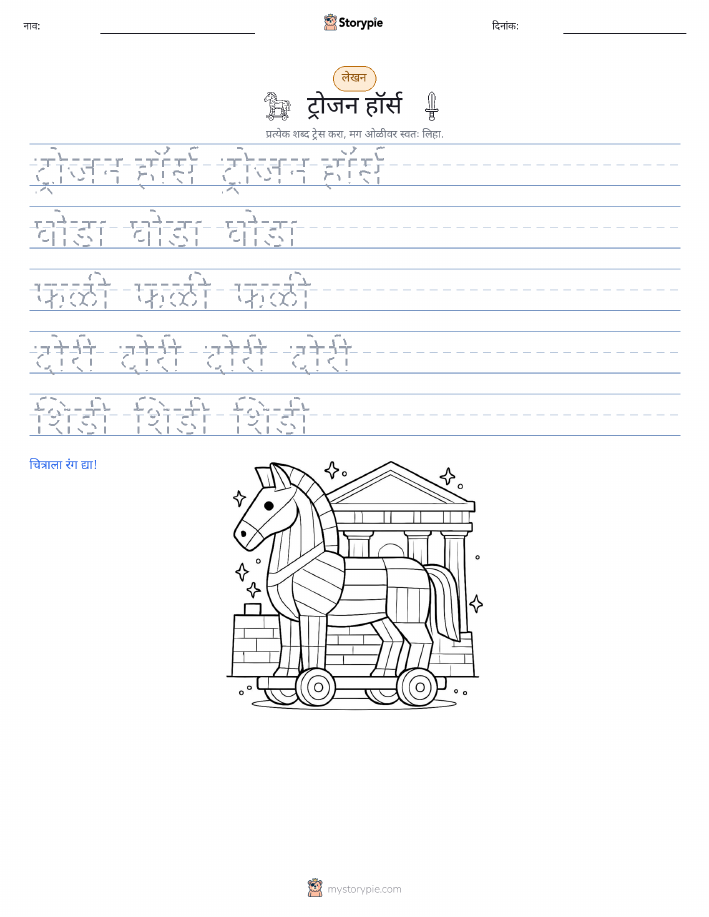 नाव: Storypie दिनांक:
लेखन
ट्रोजन हॉर्स
प्रत्येक शब्द ट्रेस करा, मग ओळीवर स्वतः लिहा.
ट्रोजन हॉर्स ट्रोजन हॉर्स
घोडा घोडा घोडा
फळी फळी फळी
दोरी दोरी दोरी दोरी
शिडी शिडी शिडी
चित्राला रंग द्या!
mystorypie.com